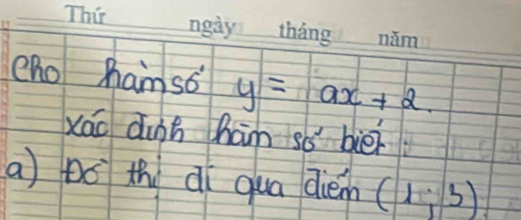 Thứ ngày tháng năm
Cho hàm số y = ax + 2.
xác định hàm số biết :
a) Đồ thị đi qua điểm (1; 3)